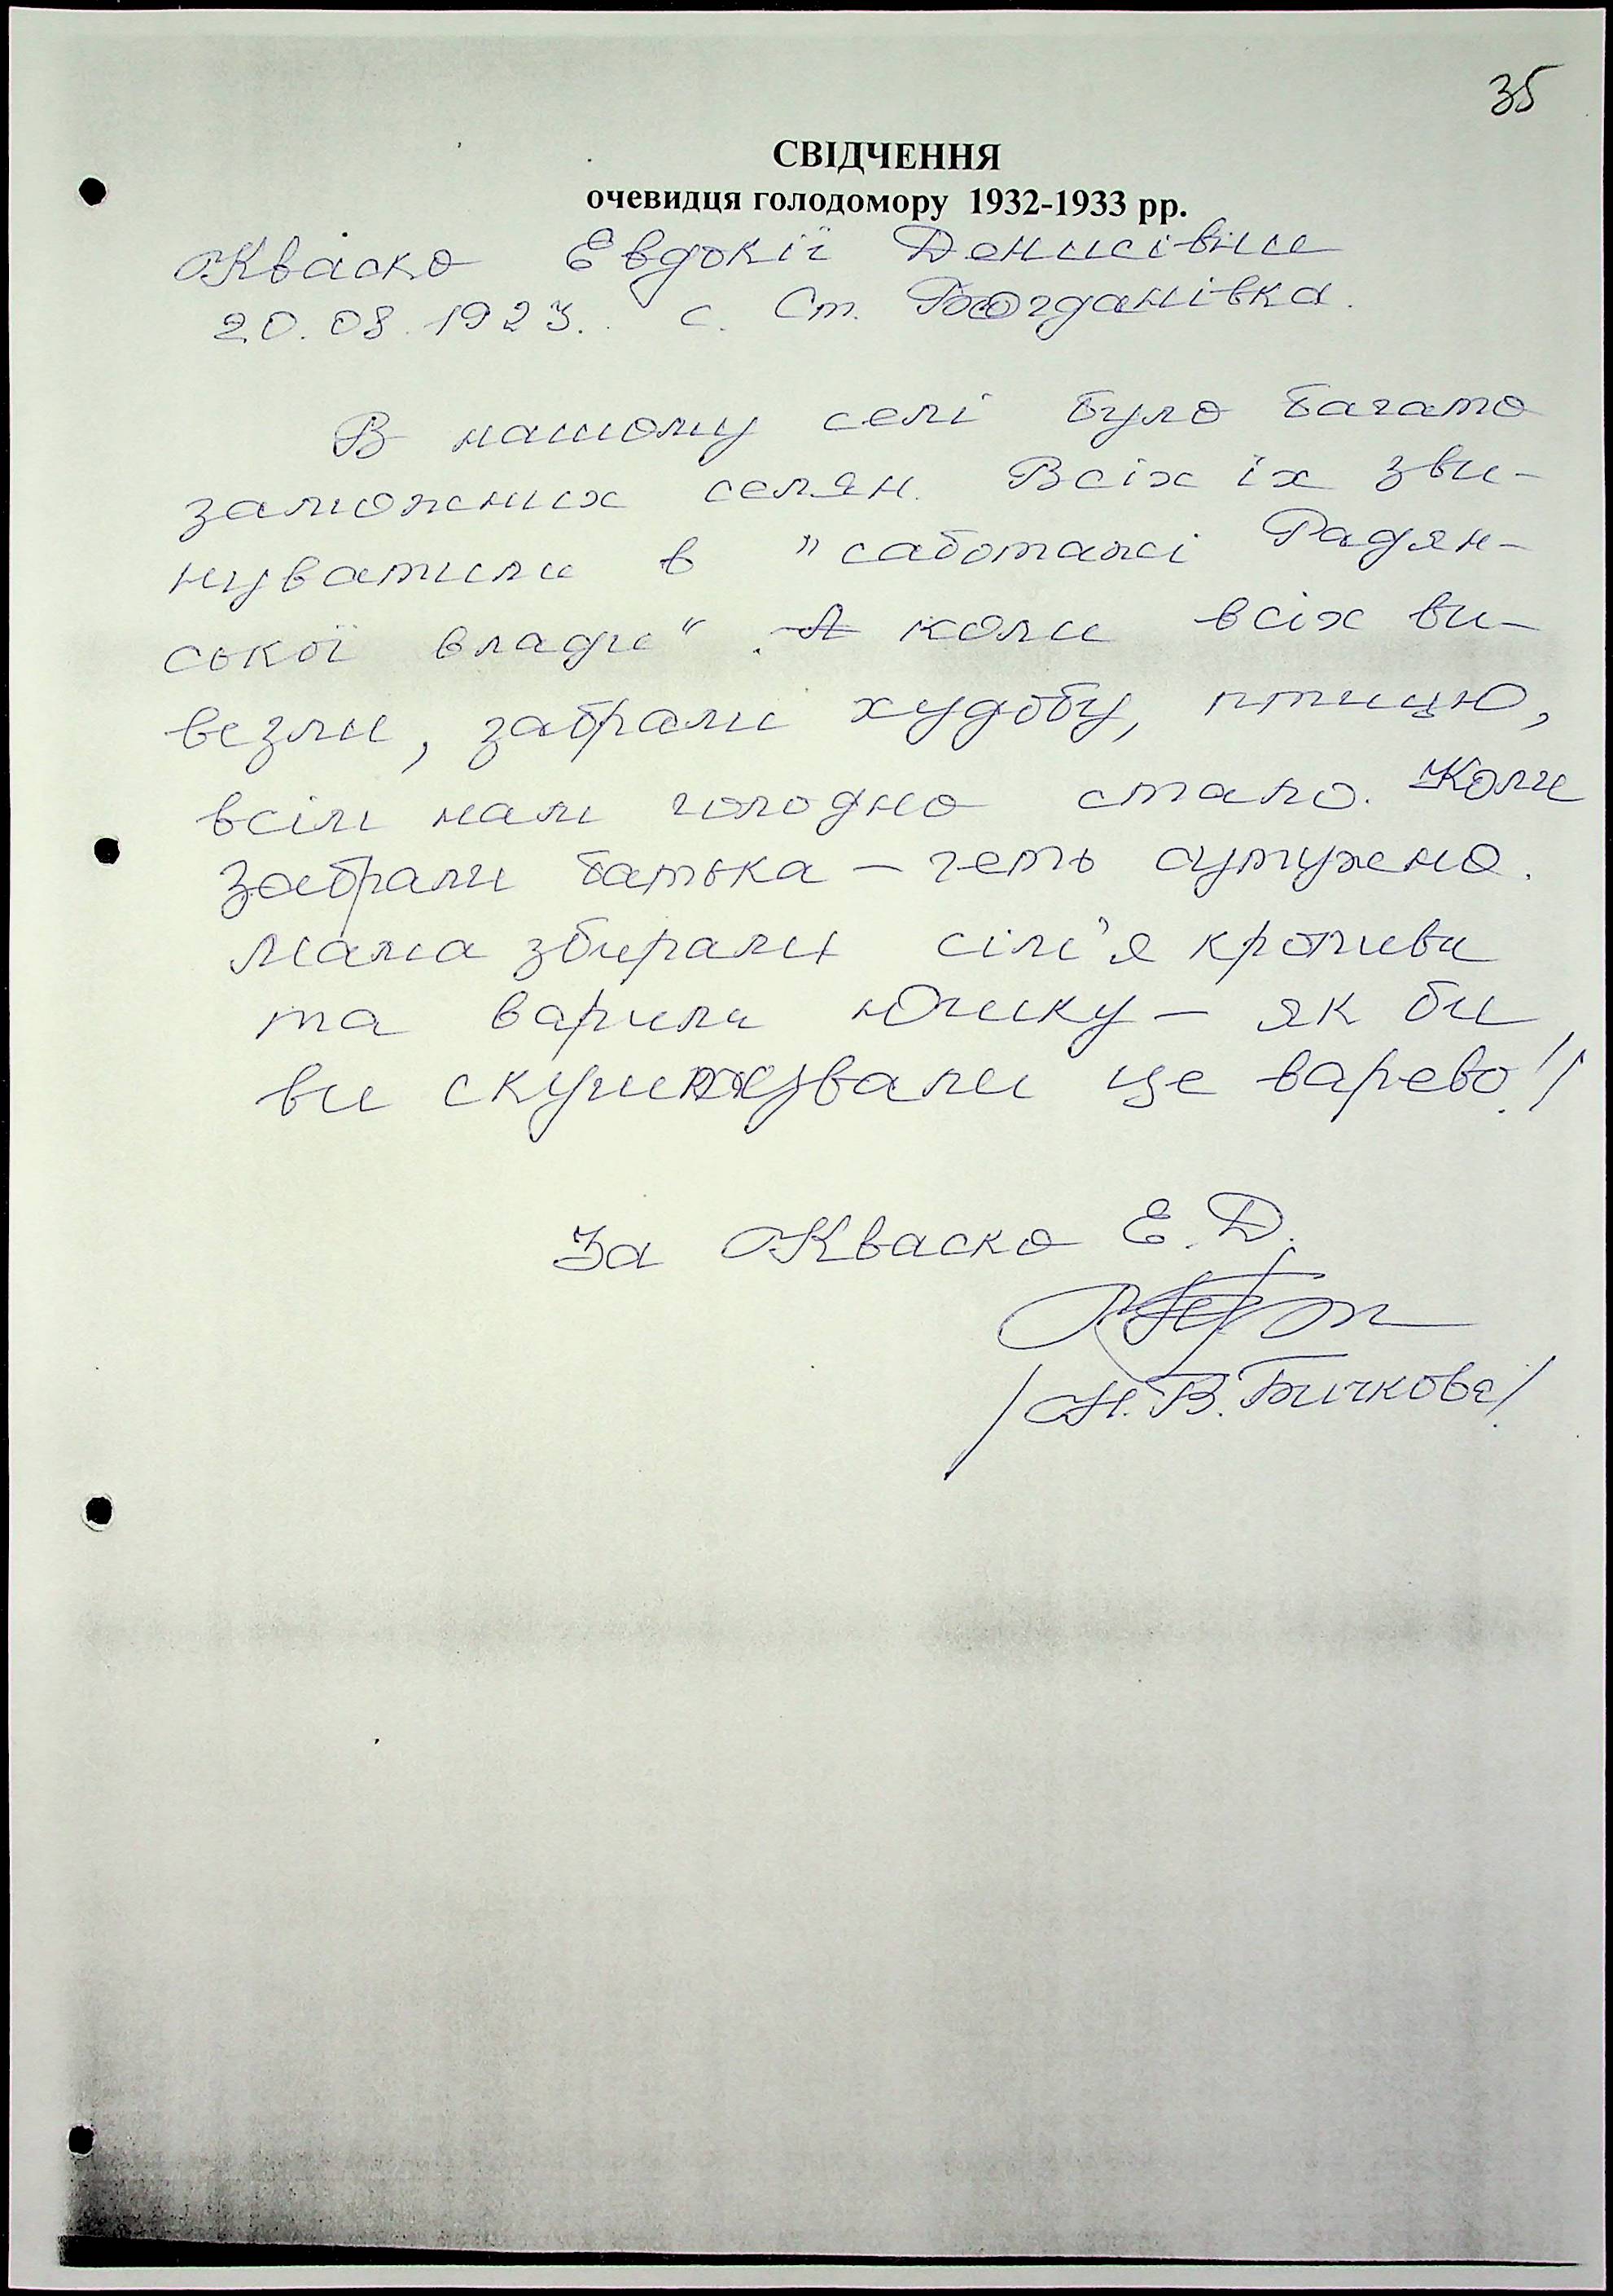 35
СВІДЧЕННЯ
очевидця голодомору 1932-1933 рр.
Кваско Евдокії Денисівни
20.08.1923. с. Ст. Богданівка.
В нашому селі було багато
заможних селян. Всіх їх зви-
нуватили в "саботажі Радян-
ської влади". А коли всіх ви-
везли, забрали худобу, птицю,
всім нам голодно стало. Коли
забрали батька — геть сутужно.
Мама збирали сім'я кропиви
та варили юшку — як би
ви скуштували це варево!
За Кваско Е. Д.
/Н. В. Бичкова/